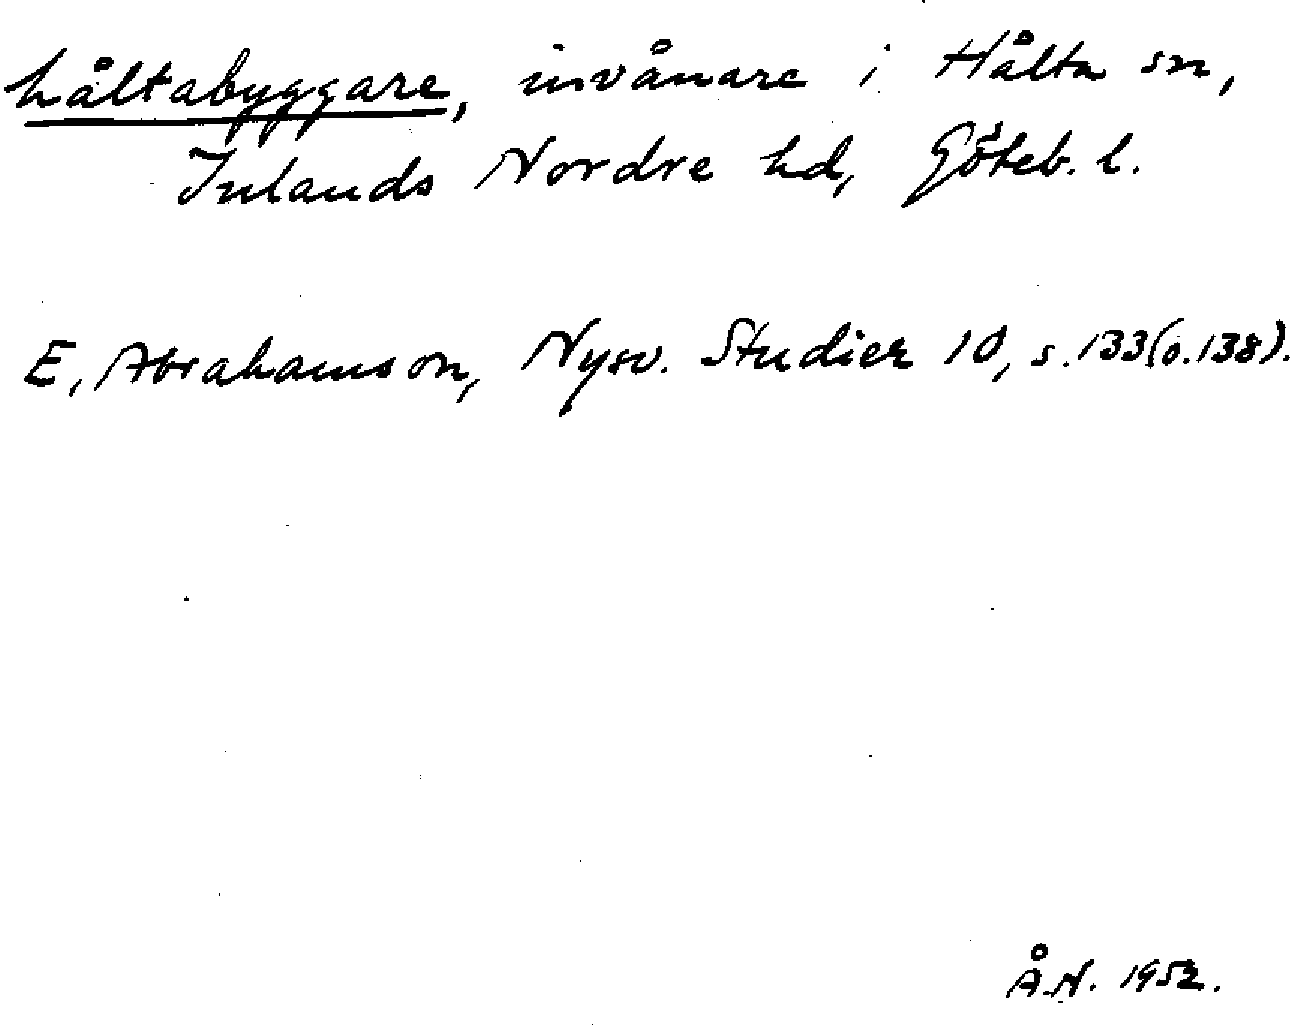 håltabyggare, invånare i Hålta sn,
Inlands Nordre hd, Göteb. l.
E. Abrahamson, Nysv. Studier 10, s. 133 (o. 138).
Å.N. 1952.